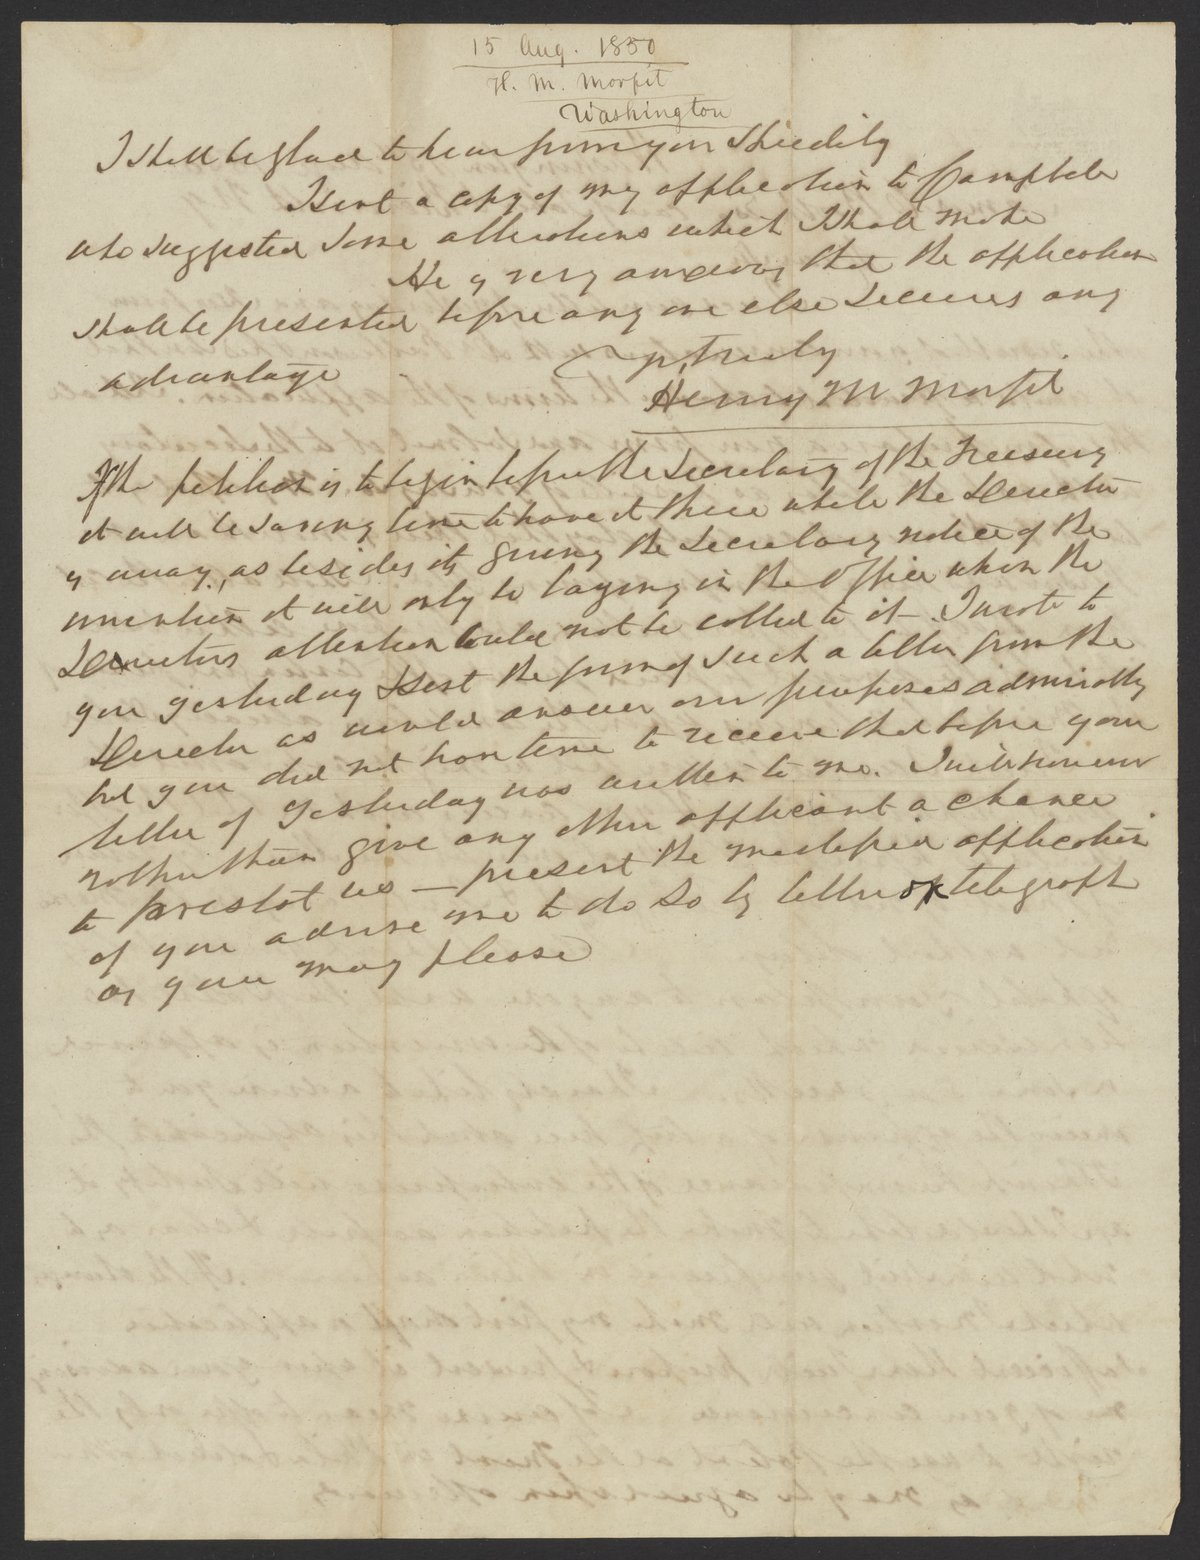 15 Aug. 1850
H. M. Morfit
Washington
I shall be glad to hear from you speedily
I sent a copy of my application to Campbell
who suggested some alterations which I shall make
He is very anxious that the application
shall be presented before any one else secures any
advantage
Yrs, truly
Henry M Morfit
If the petition is to begin before the Secretary of the Treasury
it will be saving time to have it there while the Director
is away, as besides its giving the Secretary notice of the
invention it will only be laying in the Office when the
Directors attention could not be called to it - I wrote to
you yesterday & sent the form of such a letter from the
Director as would answer our purposes admirably
but you did not have time to receive that before your
letter of yesterday was written to me. I will however
rather than give any other applicant a chance
to forestal us — present the application
if you advise me to do so by letter or telegraph
as you may please